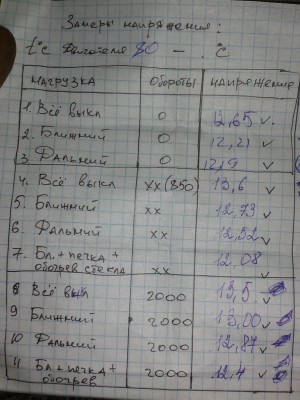 Замеры напряжения:
t°c двигателя 80 — °C
НАГРУЗКА ОБОРОТЫ НАПРЯЖЕНИЕ
1. Всё выкл 0 12,65 v.
2. Ближний 0 12,21 v
3. Дальний 0 12,9 v
4. Всё выкл xx (850) 13,6 v
5. Ближний xx 12,73 v
6. Дальний xx 12,52 v
7. Бл. + печка +
обогрев стекла xx 12,08 v
8 Всё выкл 2000 13,5 v
9 Ближний 2000 13,00 v
10 Дальний 2000 12,87 v
11 Бл + печка +
обогрев 2000 12,4 v